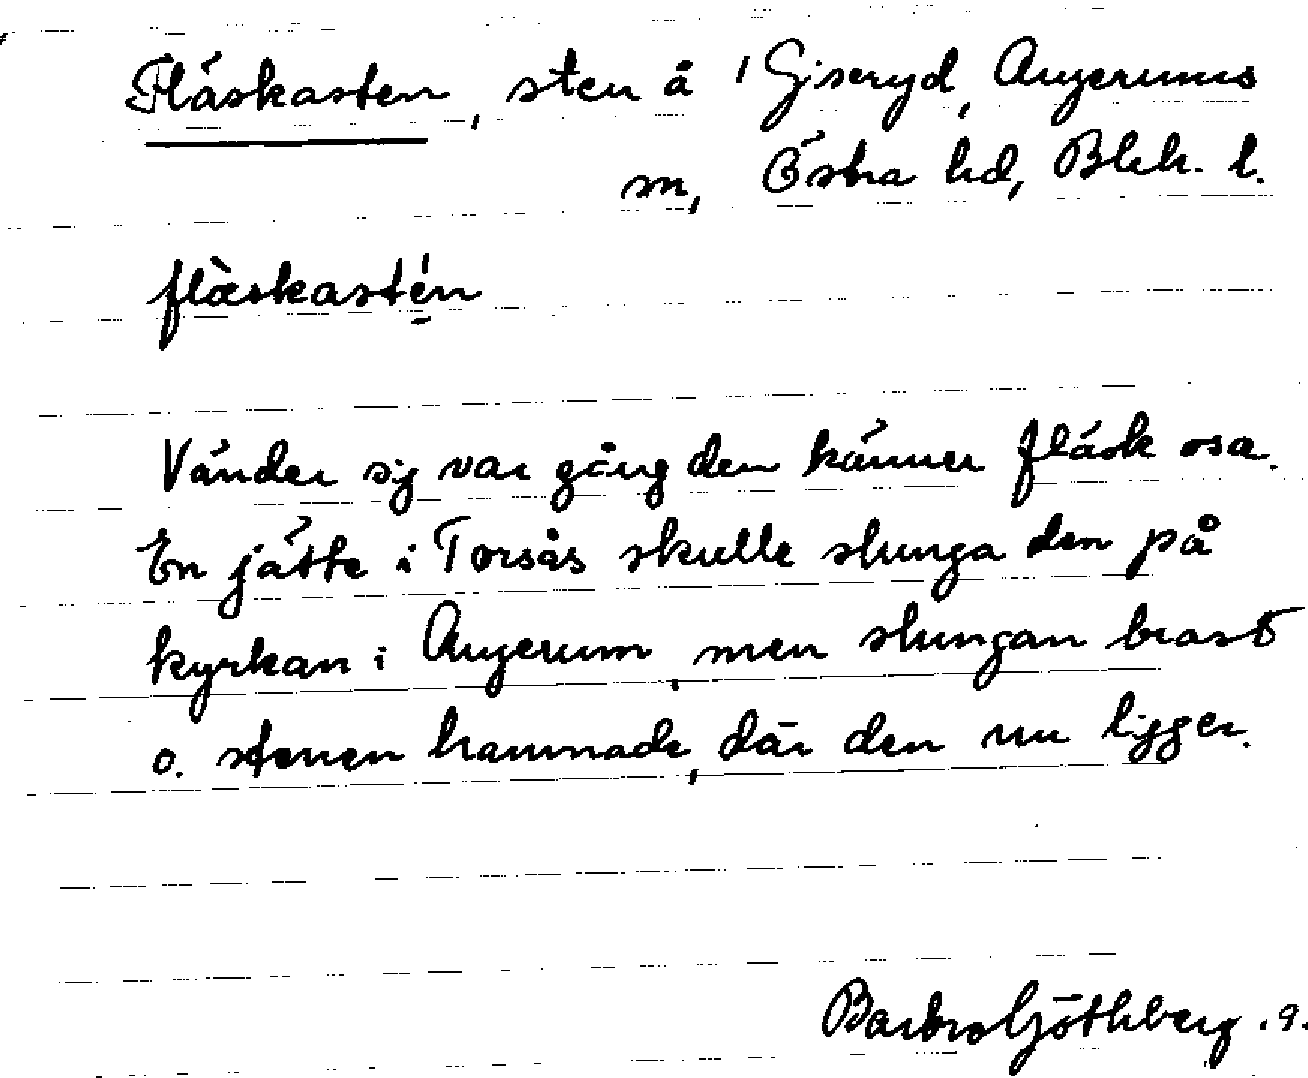 Fläskasten, sten å 1 Giseryd, Augerums
sn, Östra hd, Blek. l.
flæ̀skastén
Vänder sig var gång den känner fläsk osa.
En jätte i Torsås skulle slunga den på
kyrkan i Augerum, men slungan brast
o. stenen hamnade, där den nu ligger.
Barbro Göthberg .9.